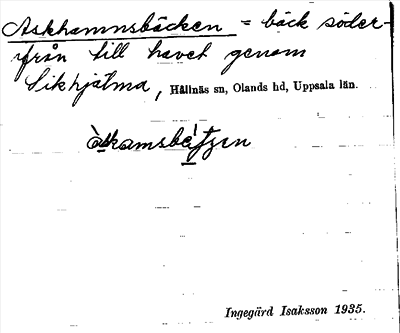 Askhamnsbäcken = bäck söder-
ifrån till havet genom
Sikhjälma, Hållnäs sn, Olands hd, Uppsala län.
Ingegärd Isaksson 1935.